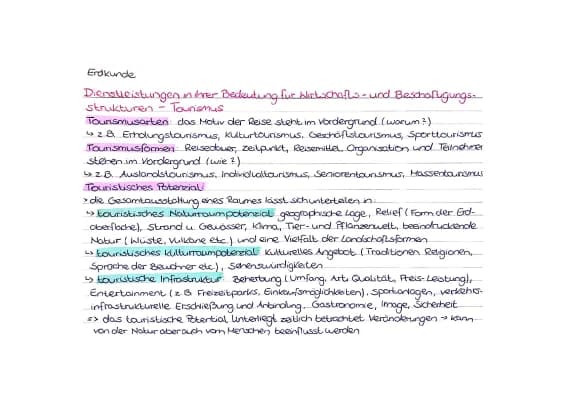 Erdkunde
Dienstleistungen in ihrer Bedeutung für Wirtschafts- und Beschäfigungs-
strukturen - Tourismus
Tourismusarten: das Motiv der Reise steht im Vordergrund (warum?)
↳ z.B. Erholungstourismus, Kulturtourismus, Geschäftstourismus, Sporttourismus
Tourismusformen: Reisedauer, Zeitpunkt, Reisemittel, Organisation und Teilnehmer
stehen im Vordergrund (wie?)
↳ z.B. Auslandstourismus, Individualtourismus, Seniorentourismus, Massentourismus
Touristisches Potenzial
> die Gesamtausstattung eines Raumes lässt sich unterteilen in:
↳ touristisches Naturraumpotenzial: geographische Lage, Relief (Form der Erd-
oberfläche), Strand u. Gewässer, Klima, Tier- und Pflanzenwelt, beeindruckende
Natur (Wüste, Vulkane etc.) und eine Vielfalt der Landschaftsformen
↳ touristisches Kulturraumpotenzial: Kulturelles Angebot (Traditionen, Religionen,
Sprache der Bewohner etc.), Sehenswürdigkeiten
↳ touristische Infrastruktur: Beherbung (Umfang, Art, Qualität, Preis-Leistung),
Entertainment (z.B. Freizeitparks, Einkaufsmöglichkeiten), Sportanlagen, verkehrs-
infrastrukturelle Erschließung und Anbindung, Gastronomie, Image, Sicherheit
=> das touristische Potential unterliegt zeitlich betrachtet Veränderungen → kann
von der Natur aber auch vom Menschen beeinflusst werden